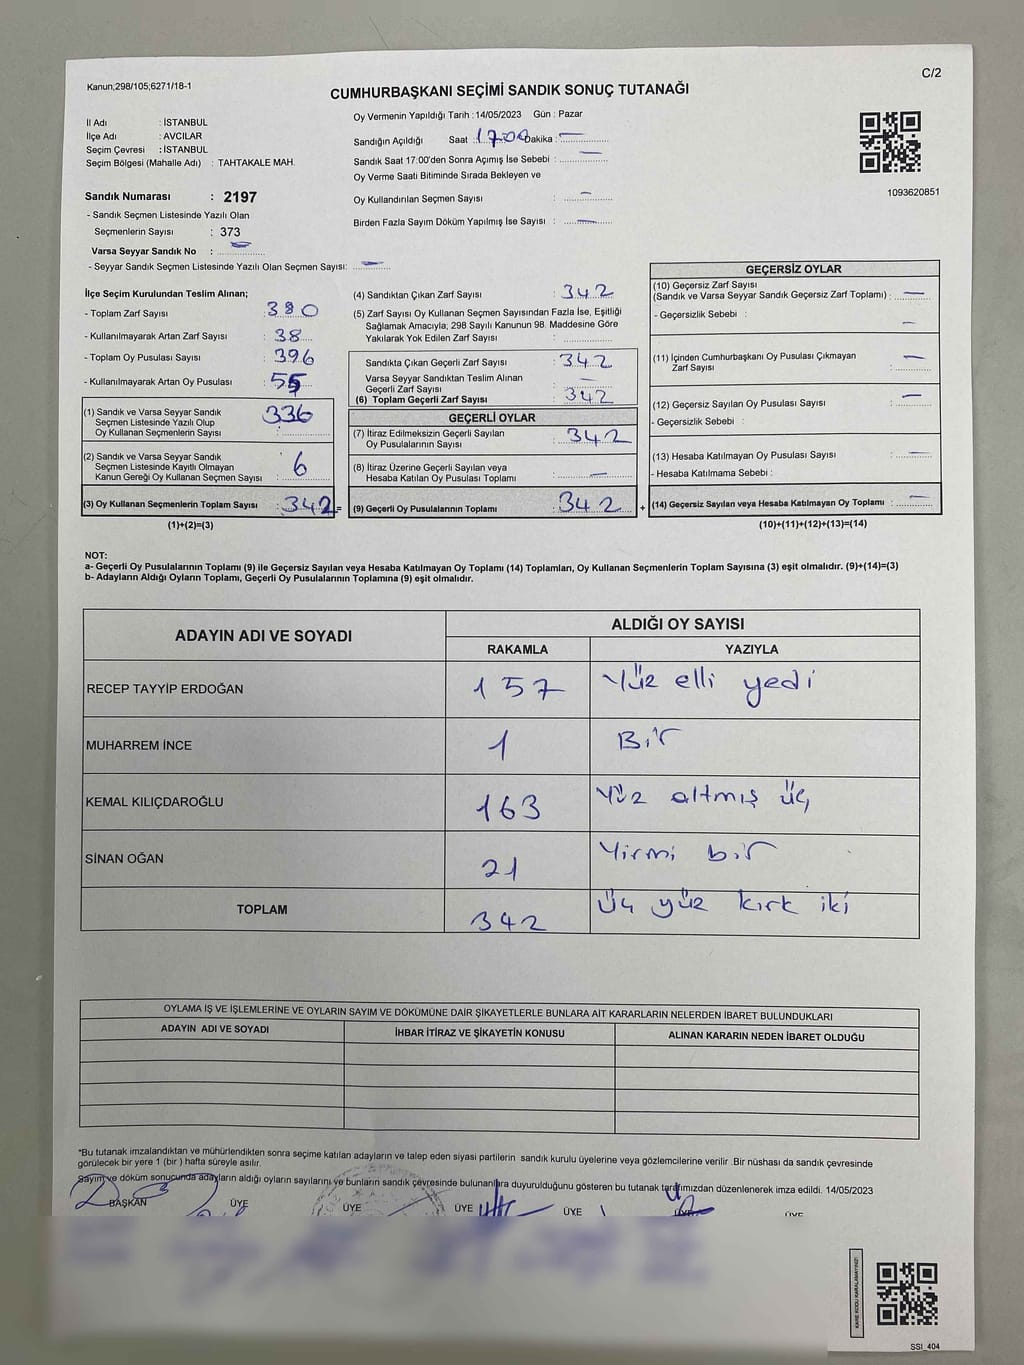 Kanun;298/105;6271/18-1
C/2
CUMHURBAŞKANI SEÇİMİ SANDIK SONUÇ TUTANAĞI
İl Adı : İSTANBUL
İlçe Adı : AVCILAR
Seçim Çevresi : İSTANBUL
Seçim Bölgesi (Mahalle Adı) : TAHTAKALE MAH.
Sandık Numarası : 2197
- Sandık Seçmen Listesinde Yazılı Olan
Seçmenlerin Sayısı : 373
Varsa Seyyar Sandık No : —
- Seyyar Sandık Seçmen Listesinde Yazılı Olan Seçmen Sayısı: —
Oy Vermenin Yapıldığı Tarih : 14/05/2023 Gün : Pazar
Sandığın Açıldığı Saat : 17.00 Dakika : —
Sandık Saat 17:00'den Sonra Açımış İse Sebebi : —
Oy Verme Saati Bitiminde Sırada Bekleyen ve
Oy Kullandırılan Seçmen Sayısı : —
Birden Fazla Sayım Döküm Yapılmış İse Sayısı : —
1093620851
İlçe Seçim Kurulundan Teslim Alınan;
- Toplam Zarf Sayısı : 380
- Kullanılmayarak Artan Zarf Sayısı : 38
- Toplam Oy Pusulası Sayısı : 396
- Kullanılmayarak Artan Oy Pusulası :
(1) Sandık ve Varsa Seyyar Sandık
Seçmen Listesinde Yazılı Olup
Oy Kullanan Seçmenlerin Sayısı : 336
(2) Sandık ve Varsa Seyyar Sandık
Seçmen Listesinde Kayıtlı Olmayan
Kanun Gereği Oy Kullanan Seçmen Sayısı : 6
(3) Oy Kullanan Seçmenlerin Toplam Sayısı : 342 =
(1)+(2)=(3)
(4) Sandıktan Çıkan Zarf Sayısı : 342
(5) Zarf Sayısı Oy Kullanan Seçmen Sayısından Fazla İse, Eşitliği
Sağlamak Amacıyla; 298 Sayılı Kanunun 98. Maddesine Göre
Yakılarak Yok Edilen Zarf Sayısı :
Sandıkta Çıkan Geçerli Zarf Sayısı : 342
Varsa Seyyar Sandıktan Teslim Alınan
Geçerli Zarf Sayısı : —
(6) Toplam Geçerli Zarf Sayısı : 342
GEÇERLİ OYLAR
(7) İtiraz Edilmeksizin Geçerli Sayılan
Oy Pusulalarının Sayısı : 342
(8) İtiraz Üzerine Geçerli Sayılan veya
Hesaba Katılan Oy Pusulası Toplamı : —
(9) Geçerli Oy Pusulalarının Toplamı : 342 +
GEÇERSİZ OYLAR
(10) Geçersiz Zarf Sayısı
(Sandık ve Varsa Seyyar Sandık Geçersiz Zarf Toplamı) : —
- Geçersizlik Sebebi : —
(11) İçinden Cumhurbaşkanı Oy Pusulası Çıkmayan
Zarf Sayısı : —
(12) Geçersiz Sayılan Oy Pusulası Sayısı : —
- Geçersizlik Sebebi :
(13) Hesaba Katılmayan Oy Pusulası Sayısı : —
- Hesaba Katılmama Sebebi :
(14) Geçersiz Sayılan veya Hesaba Katılmayan Oy Toplamı : —
(10)+(11)+(12)+(13)=(14)
NOT:
a- Geçerli Oy Pusulalarının Toplamı (9) ile Geçersiz Sayılan veya Hesaba Katılmayan Oy Toplamı (14) Toplamları, Oy Kullanan Seçmenlerin Toplam Sayısına (3) eşit olmalıdır. (9)+(14)=(3)
b- Adayların Aldığı Oyların Toplamı, Geçerli Oy Pusulalarının Toplamına (9) eşit olmalıdır.
ADAYIN ADI VE SOYADI ALDIĞI OY SAYISI
RAKAMLA YAZIYLA
RECEP TAYYİP ERDOĞAN 157 Yüz elli yedi
MUHARREM İNCE 1 Bir
KEMAL KILIÇDAROĞLU 163 Yüz altmış üç
SİNAN OĞAN 21 Yirmi bir
TOPLAM 342 Üç yüz kırk iki
OYLAMA İŞ VE İŞLEMLERİNE VE OYLARIN SAYIM VE DÖKÜMÜNE DAİR ŞİKAYETLERLE BUNLARA AİT KARARLARIN NELERDEN İBARET BULUNDUKLARI
ADAYIN ADI VE SOYADI İHBAR İTİRAZ VE ŞİKAYETİN KONUSU ALINAN KARARIN NEDEN İBARET OLDUĞU
*Bu tutanak imzalandıktan ve mühürlendikten sonra seçime katılan adayların ve talep eden siyasi partilerin sandık kurulu üyelerine veya gözlemcilerine verilir .Bir nüshası da sandık çevresinde
görülecek bir yere 1 (bir ) hafta süreyle asılır.
Sayım ve döküm sonucunda adayların aldığı oyların sayılarını ve bunların sandık çevresinde bulunanlara duyurulduğunu gösteren bu tutanak tarafımızdan düzenlenerek imza edildi. 14/05/2023
BAŞKAN ÜYE ÜYE ÜYE ÜYE ÜYE ÜYE
KARE KODU KARALAMAYINIZ!
SSI_404